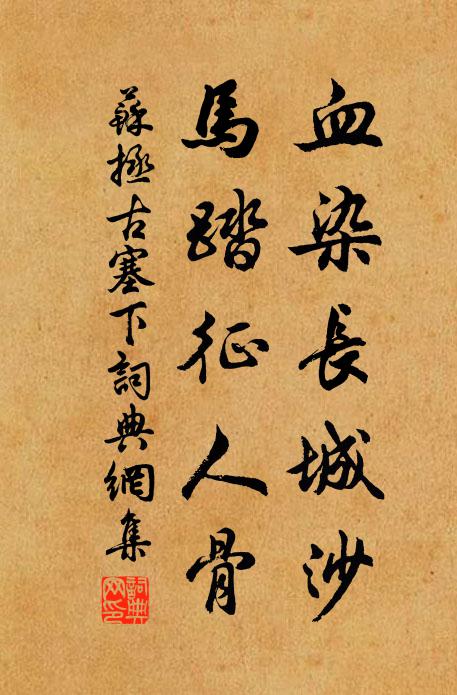 血染長城沙
馬踏征人骨
蘇拯古塞下詞典網集
詞典網印